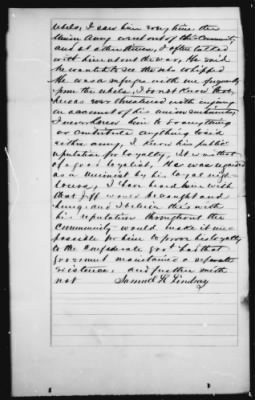 rebels, I saw him every time the
Union Army was out of this community
and at other times, I often talked
with him about the war, He said
he wanted to see the rebs whipped
He was a refugee with me frequently
from the rebels, I do not know that
he was ever threatened with injury
on account of his union sentiments,
I never knew him to do anything
or contribute anything to aid
either army, I know his public
reputation for loyalty, It is
of a good loyalist, He was regarded
as a Unionist by his loyal neigh-
bors, I have heard men
that Jeff would be caught and
hung and I believe this with
his reputation throughout the
community would make it im-
possible for him to prove his loyalty
to the Confederate govt had that
government maintained a separate
existence, and further saith
not Samuel K Lindsay